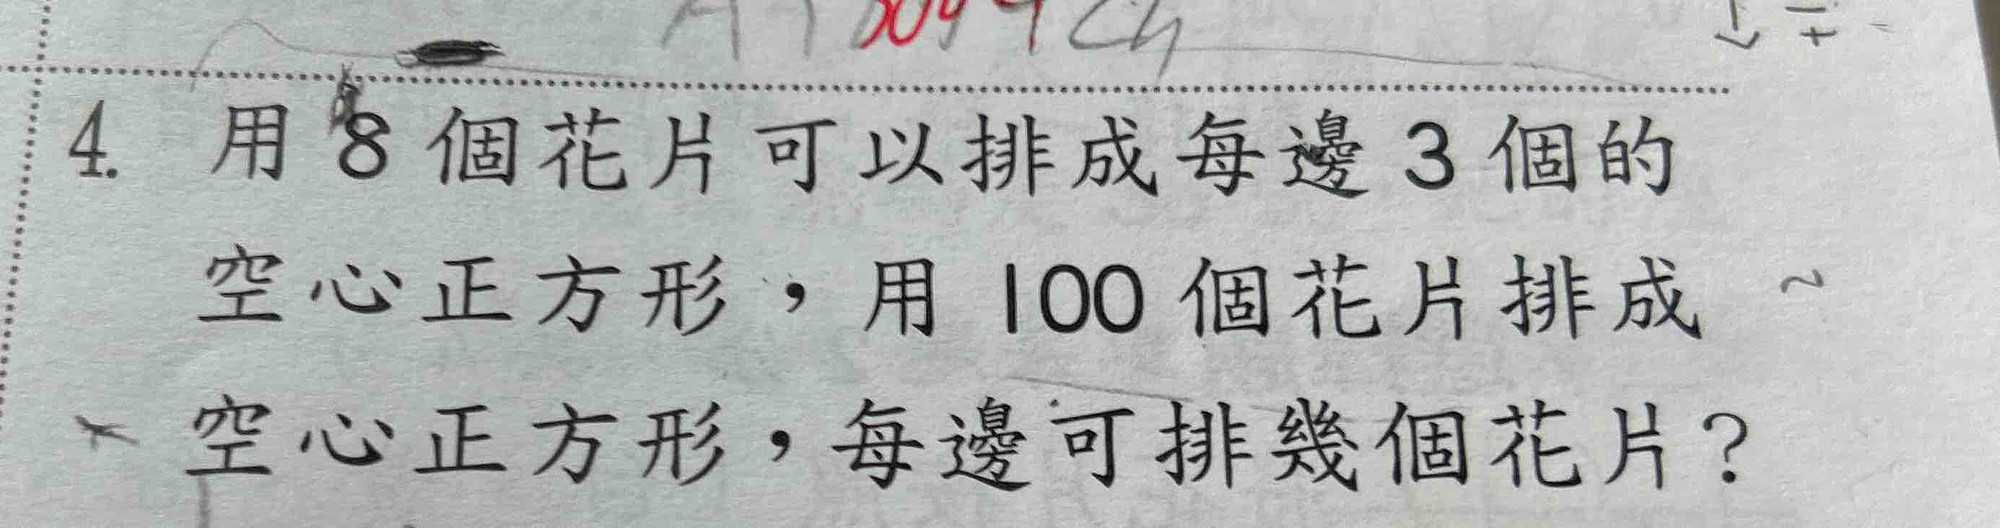 4. 用 8 個花片可以排成每邊 3 個的
空心正方形，用 100 個花片排成
空心正方形，每邊可排幾個花片？